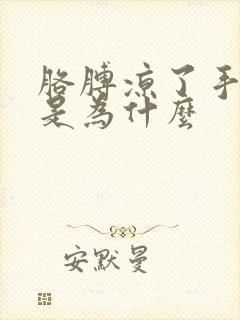 胳膊涼了手
是為什麼
安默曼